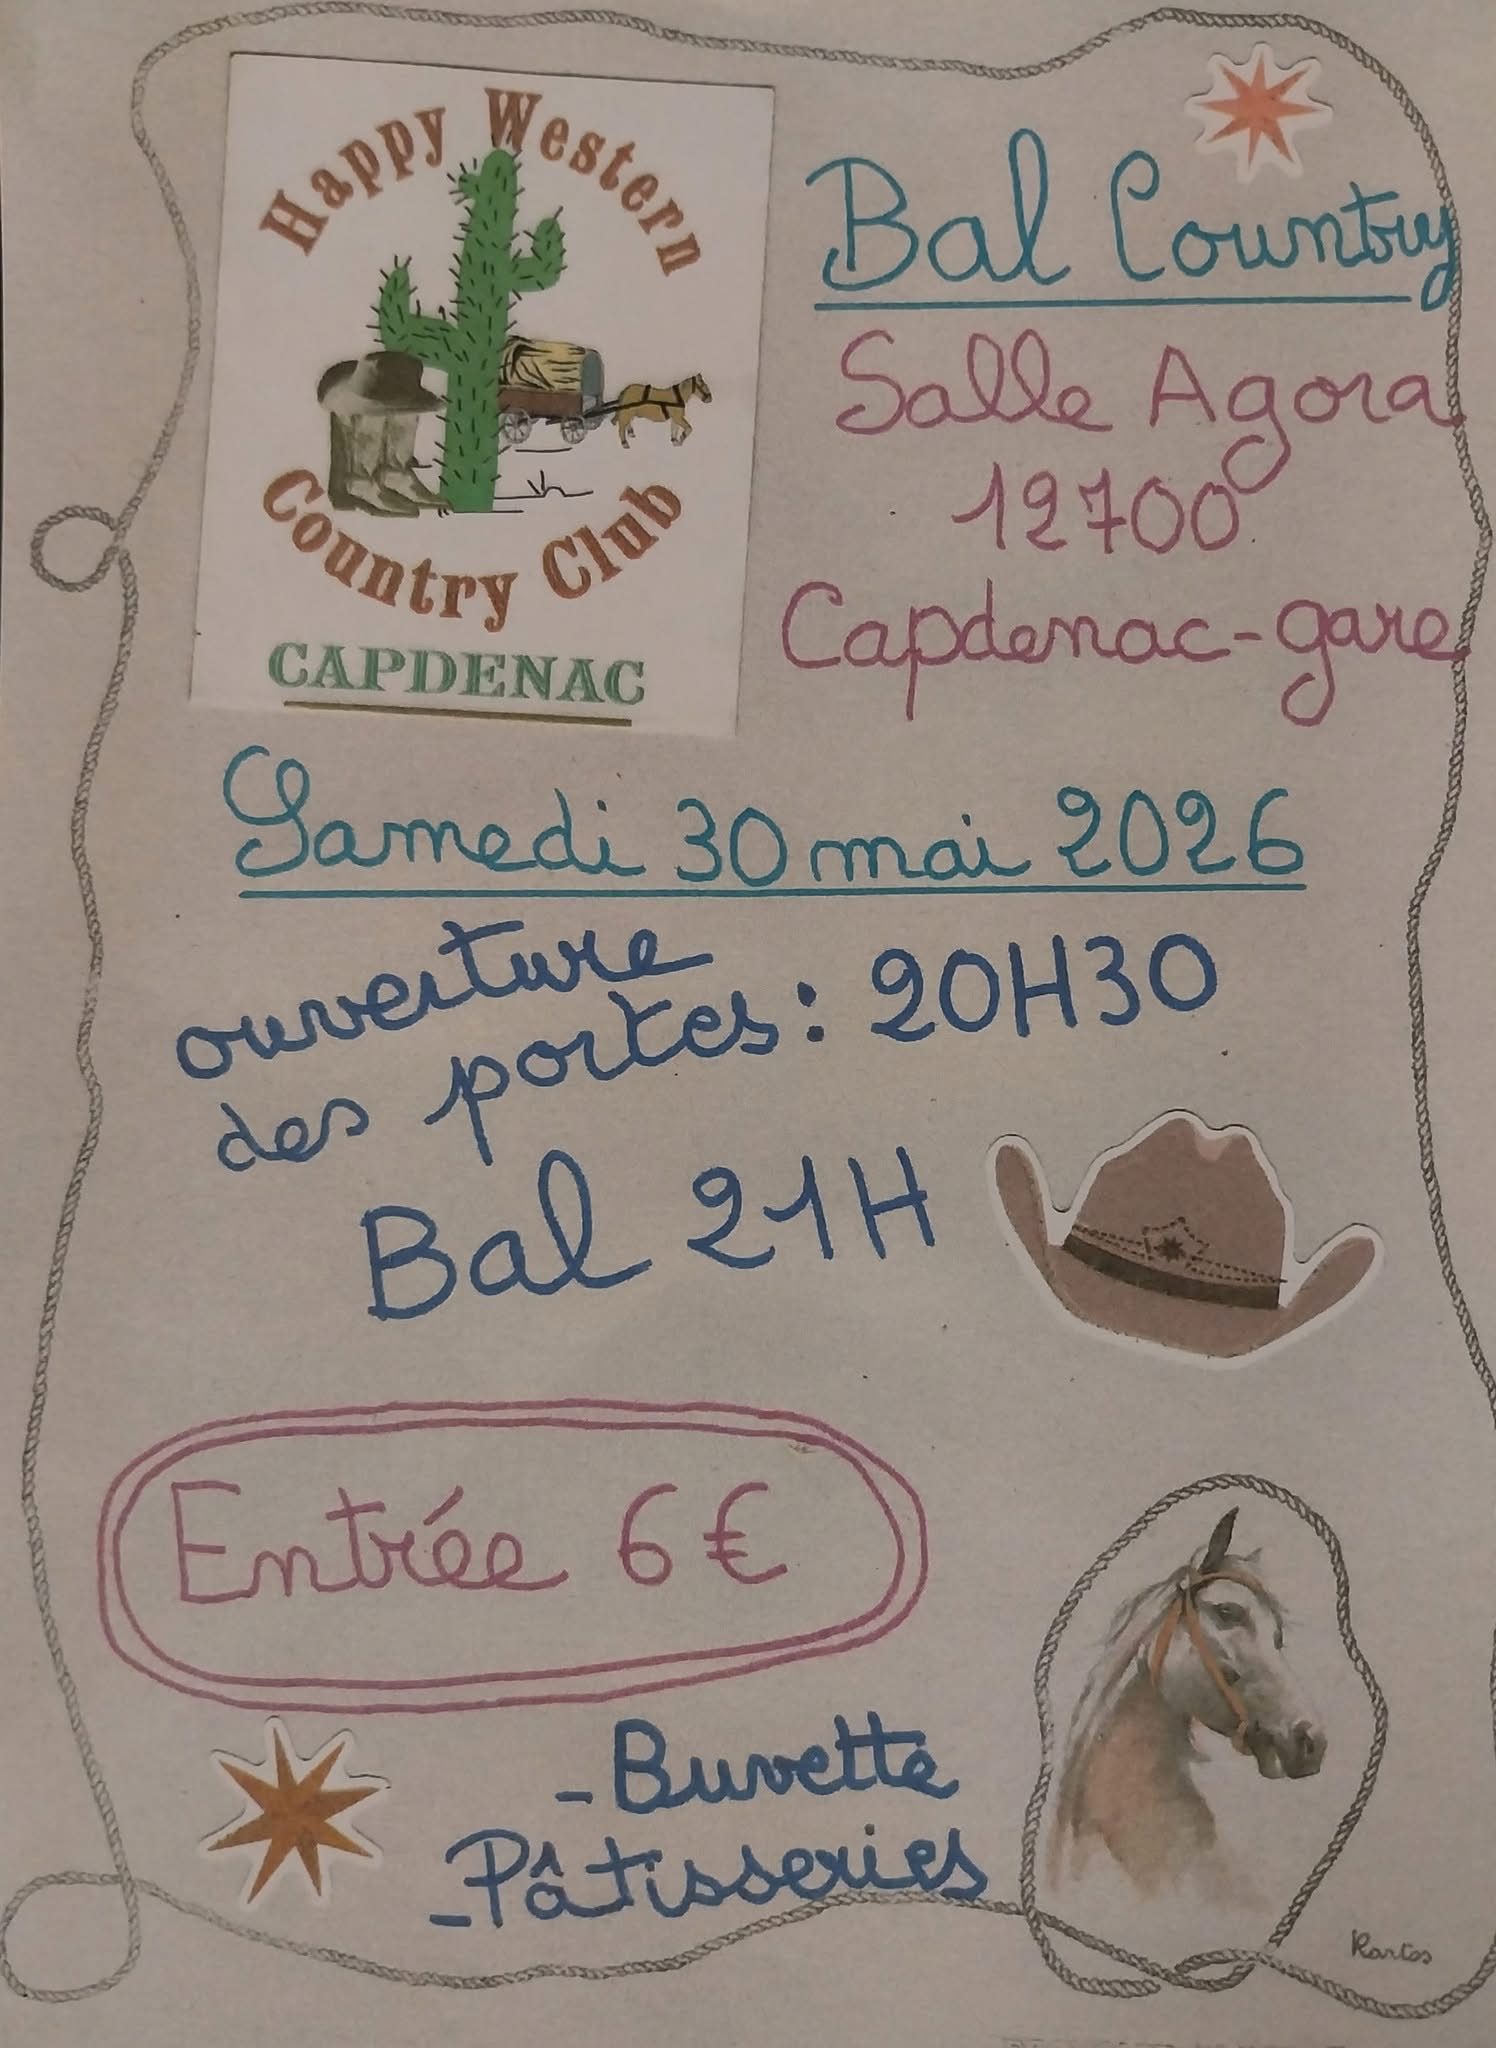 Happy Western
Country Club
CAPDENAC
Bal Country
Salle Agora
12700
Capdenac-gare
Samedi 30 mai 2026
ouverture
des portes : 20H30
Bal 21H
Entrée 6 €
- Buvette
- Pâtisseries